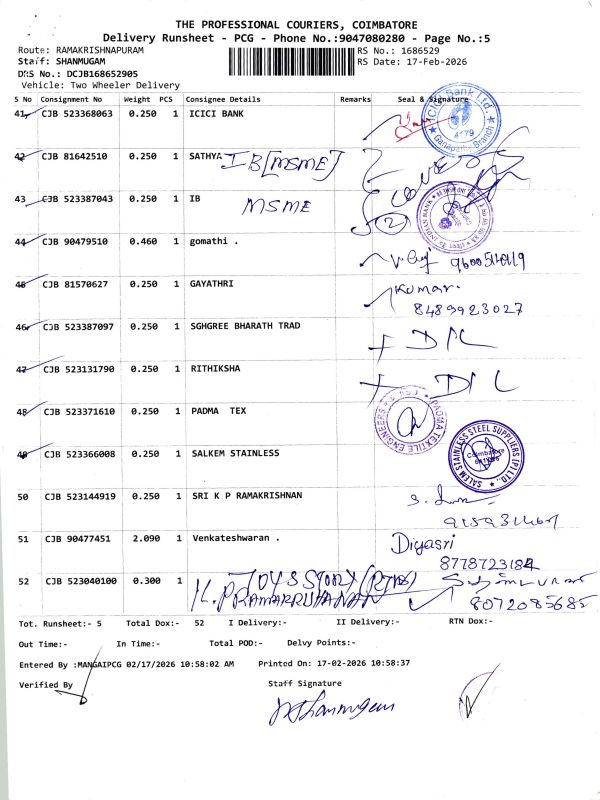 THE PROFESSIONAL COURIERS, COIMBATORE
Delivery Runsheet - PCG - Phone No.:9047080280 - Page No.:5
Route: RAMAKRISHNAPURAM RS No.: 1686529
Staff: SHANMUGAM RS Date: 17-Feb-2026
DRS No.: DCJB168652905
Vehicle: Two Wheeler Delivery
S No Consignment No Weight PCS Consignee Details Remarks Seal & Signature
41 CJB 523368063 0.250 1 ICICI BANK
ICICI Bank Ltd. 4179 Ganapathy Branch
42 CJB 81642510 0.250 1 SATHYA IB [MSME]
43 CJB 523387043 0.250 1 IB MSME
2
INDIAN BANK
44 CJB 90479510 0.460 1 gomathi .
45 CJB 81570627 0.250 1 GAYATHRI Kumar.
8489923027
46 CJB 523387097 0.250 1 SGHGREE BHARATH TRAD
47 CJB 523131790 0.250 1 RITHIKSHA
48 CJB 523371610 0.250 1 PADMA TEX
PADMA TEXTILE ENGINEERS
49 CJB 523366008 0.250 1 SALKEM STAINLESS
SALEM STAINLESS STEEL SUPPLIERS (P) LTD. Coimbatore
50 CJB 523144919 0.250 1 SRI K P RAMAKRISHNAN
51 CJB 90477451 2.090 1 Venkateshwaran . Diyasri
8778723184
52 CJB 523040100 0.300 1 TOYS STORY
K.P RAMAKRISHANAN
8072085685
Tot. Runsheet:- 5 Total Dox:- 52 I Delivery:- II Delivery:- RTN Dox:-
Out Time:- In Time:- Total POD:- Delvy Points:-
Entered By :MANGAIPCG 02/17/2026 10:58:02 AM Printed On: 17-02-2026 10:58:37
Verified By Staff Signature